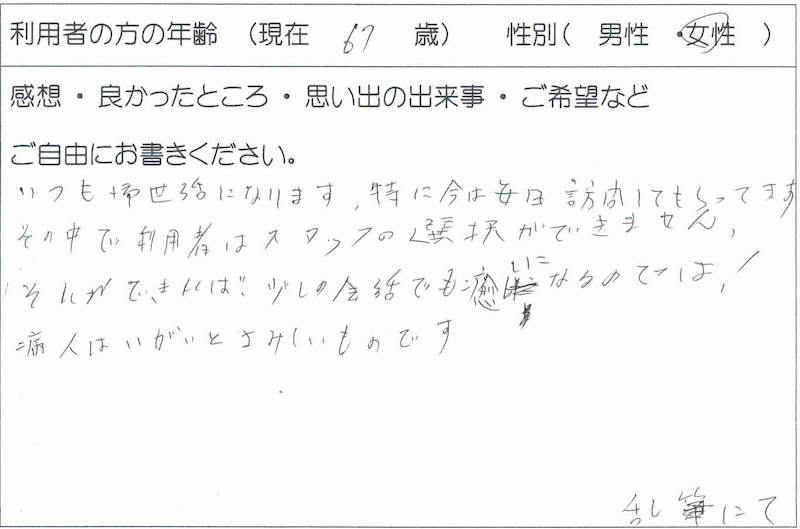 利用者の方の年齢 (現在 67 歳) 性別( 男性 ・女性 )
感想・良かったところ・思い出の出来事・ご希望など
ご自由にお書きください。
いつも御世話になります, 特に今は毎日訪問してもらってます
その中で利用者はスタッフの選択ができません,
それができれば! 少しの会話でも癒しになるのでは,!
病人はいがいとさみしいものです
乱筆にて